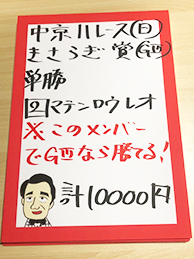 中京11レース(日)
きさらぎ賞(GⅢ)
単勝
2マテンロウレオ
※このメンバー
でGⅢなら勝てる!
計10000円